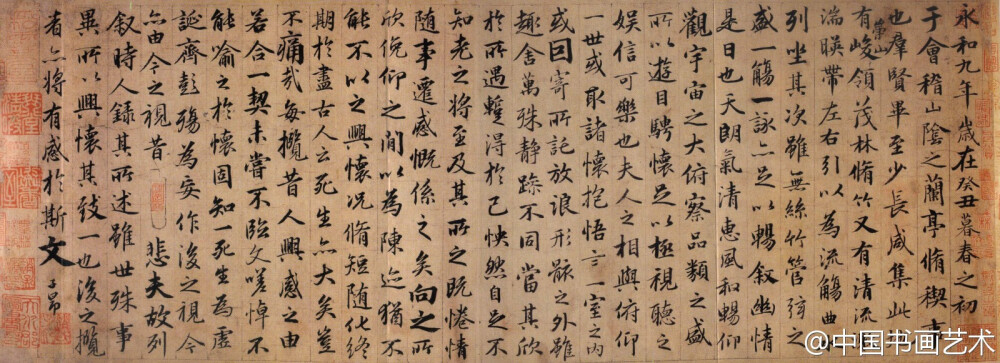 永和九年歲在癸丑暮春之初
于會稽山陰之蘭亭脩稧事
也群賢畢至少長咸集此
有崇山峻領茂林脩竹又有清流
湍暎帶左右引以為流觴曲
列坐其次雖無絲竹管弦之
盛一觴一詠亦足以暢敘幽情
是日也天朗氣清惠風和暢仰
觀宇宙之大俯察品類之盛
所以遊目騁懷足以極視聽之
娛信可樂也夫人之相與俯仰
一世或取諸懷抱悟言一室之內
或因寄所託放浪形骸之外雖
趣舍萬殊靜躁不同當其欣
於所遇蹔得於己怏然自足不
知老之將至及其所之既惓情
隨事遷感慨係之矣向之所
欣俛仰之間以為陳迹猶不
能不以之興懷況脩短隨化終
期於盡古人云死生亦大矣豈
不痛哉每攬昔人興感之由
若合一契未嘗不臨文嗟悼不
能喻之於懷固知一死生為虛
誕齊彭殤為妄作後之視今
亦由今之視昔悲夫故列
敘時人錄其所述雖世殊事
異所以興懷其致一也後之攬
者亦將有感於斯文
子昂
@中国书画艺术